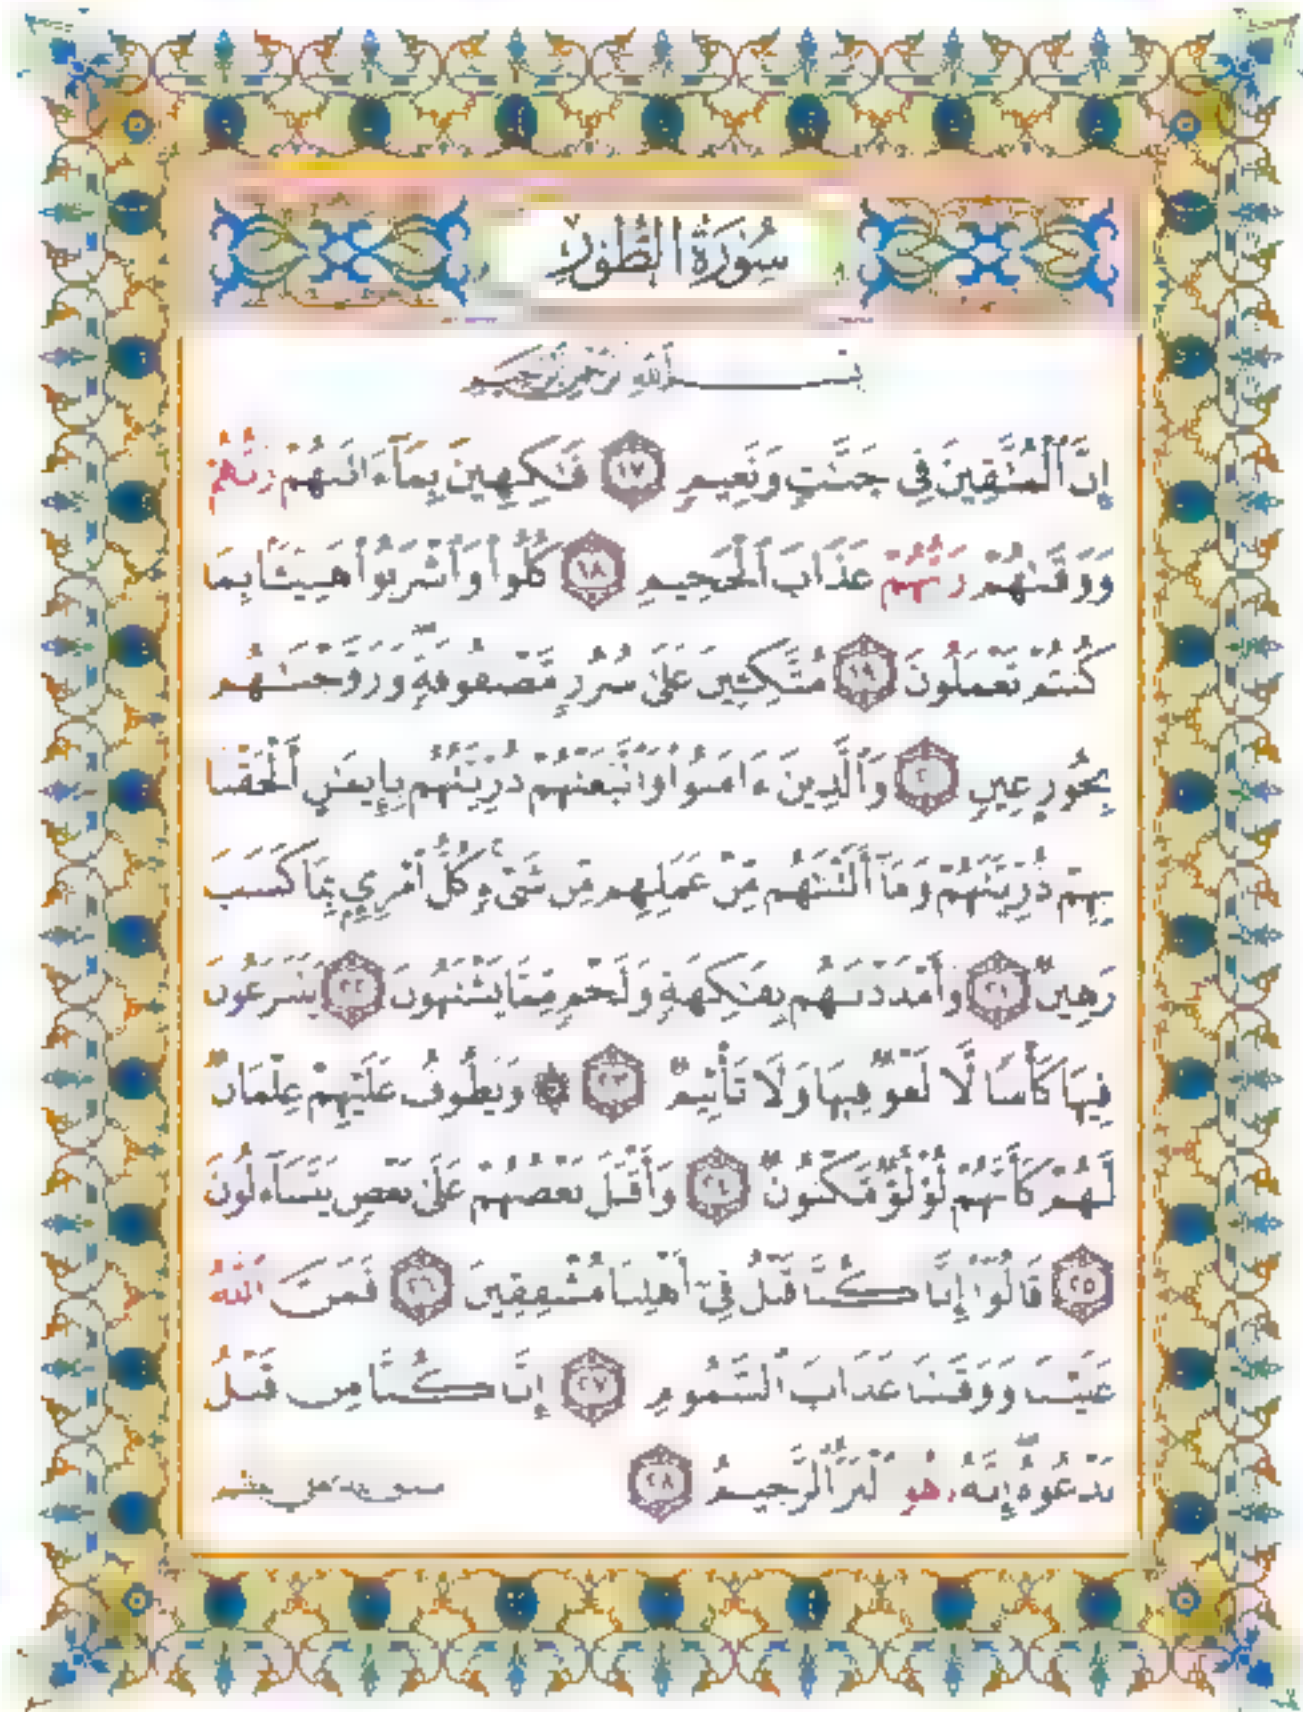 سُورَةُ الطُّورِ
بِسْمِ اللَّهِ الرَّحْمَٰنِ الرَّحِيمِ
إِنَّ ٱلْمُتَّقِينَ فِى جَنَّٰتٍ وَنَعِيمٍ ١٧ فَٰكِهِينَ بِمَآ ءَاتَىٰهُمْ رَبُّهُمْ
وَوَقَىٰهُمْ رَبُّهُمْ عَذَابَ ٱلْجَحِيمِ ١٨ كُلُوا۟ وَٱشْرَبُوا۟ هَنِيٓـًٔۢا بِمَا
كُنتُمْ تَعْمَلُونَ ١٩ مُتَّكِـِٔينَ عَلَىٰ سُرُرٍ مَّصْفُوفَةٍ ۖ وَزَوَّجْنَٰهُم
بِحُورٍ عِينٍ ٢٠ وَٱلَّذِينَ ءَامَنُوا۟ وَٱتَّبَعَتْهُمْ ذُرِّيَّتُهُم بِإِيمَٰنٍ أَلْحَقْنَا
بِهِمْ ذُرِّيَّتَهُمْ وَمَآ أَلَتْنَٰهُم مِّنْ عَمَلِهِم مِّن شَىْءٍ ۚ كُلُّ ٱمْرِئٍۭ بِمَا كَسَبَ
رَهِينٌ ٢١ وَأَمْدَدْنَٰهُم بِفَٰكِهَةٍ وَلَحْمٍ مِّمَّا يَشْتَهُونَ ٢٢ يَتَنَٰزَعُونَ
فِيهَا كَأْسًا لَّا لَغْوٌ فِيهَا وَلَا تَأْثِيمٌ ٢٣ ۞ وَيَطُوفُ عَلَيْهِمْ غِلْمَانٌ
لَّهُمْ كَأَنَّهُمْ لُؤْلُؤٌ مَّكْنُونٌ ٢٤ وَأَقْبَلَ بَعْضُهُمْ عَلَىٰ بَعْضٍ يَتَسَآءَلُونَ
٢٥ قَالُوٓا۟ إِنَّا كُنَّا قَبْلُ فِىٓ أَهْلِنَا مُشْفِقِينَ ٢٦ فَمَنَّ ٱللَّهُ
عَلَيْنَا وَوَقَىٰنَا عَذَابَ ٱلسَّمُومِ ٢٧ إِنَّا كُنَّا مِن قَبْلُ
نَدْعُوهُ ۖ إِنَّهُۥ هُوَ ٱلْبَرُّ ٱلرَّحِيمُ ٢٨